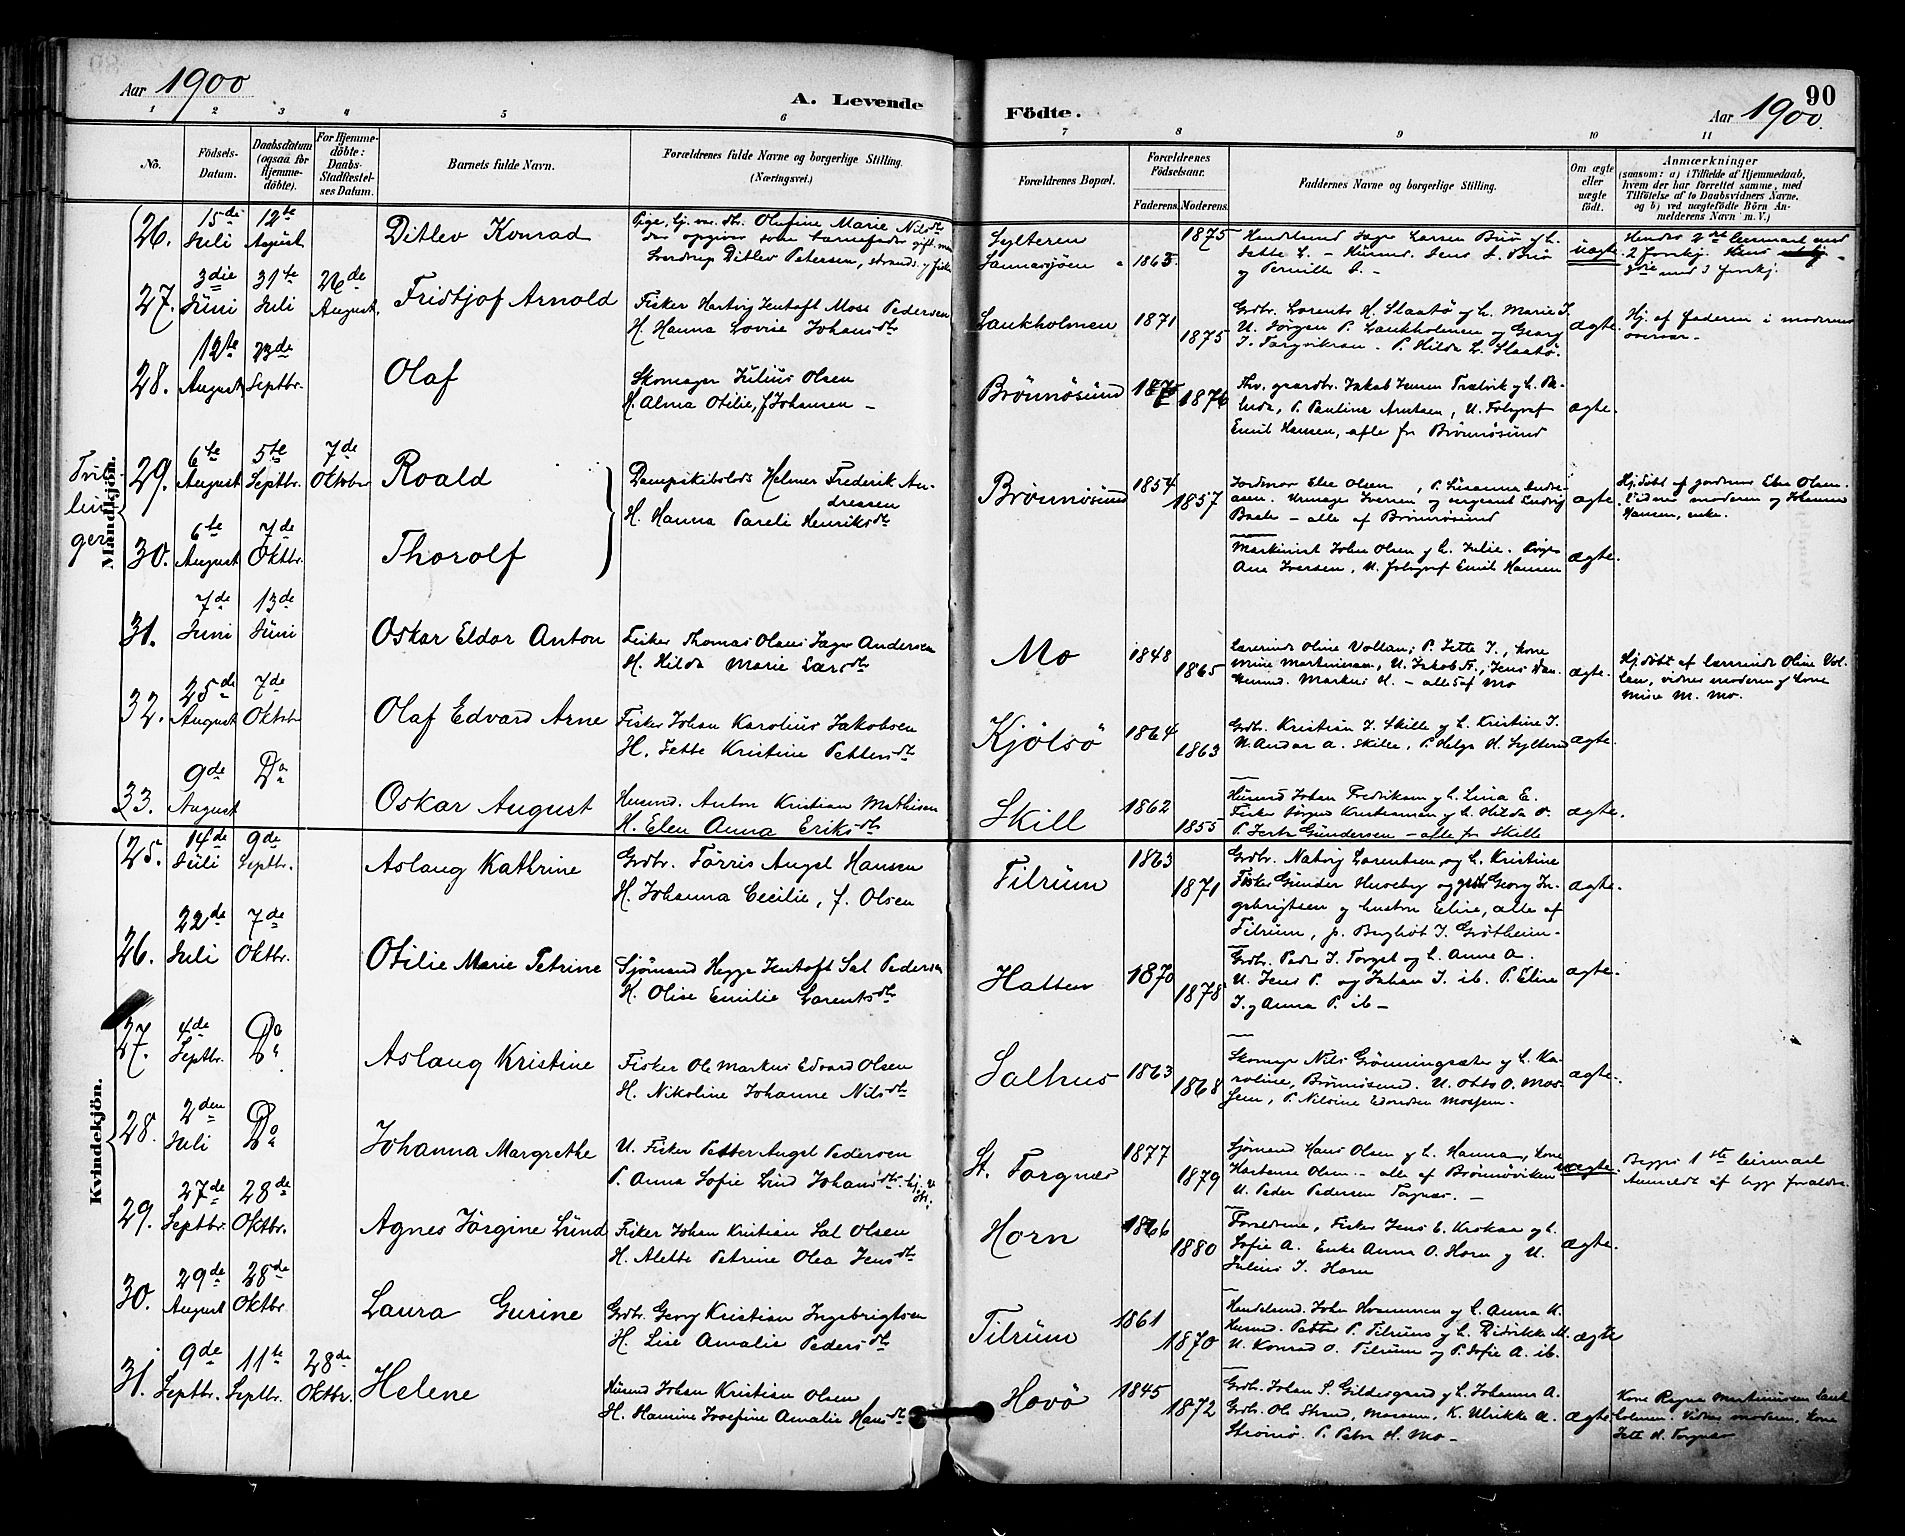 Aar 1900
A. Levende
Födte.
Aar 1900.
90
1 2 3 4 5 6 7 8 9 10 11
No.
Födsels-Datum.
Daabsdatum (ogsaa for Hjemmedöbte).
For Hjemmedöbte: Daabs-Stadfæstelses Datum.
Barnets fulde Navn.
Forældrenes fulde Navne og borgerlige Stilling. (Næringsvei.)
Forældrenes Bopæl.
Forældrenes Födselsaar.
Faderens. Moderens.
Faddernes Navne og borgerlige Stilling.
Om ægte eller uægte födt.
Anmærkninger
(saasom: a) i Tilfælde af Hjemmedaab, hvem der har forrettet samme, med Tilföielse af to Daabsvidners Navne. og b) ved uægtefödte Börn Anmelderens Navn m. V.)
Mandkjön.
26. 15de Juli 12te August
Ditlev Konrad
Pige, hj. Olufine Marie Nilsdtr
Ditlev Petersen,
Sylteren
1863. 1875
uægte
27. 3die Juni 31te Juli 26de August.
Fridtjof Arnold
Fisker Hartvig Jentoft Mose Pedersen
H. Hanna Lovise Johansdtr
Laukholmen
1871 1875
ægte.
Hj. af faderen i moderens
28. 12te August 23de Septbr.
Olaf
Skomager Julius Olsen
H. Alma Otilie, f. Johansen –
Brönnösund
1876
Emil Hansen, alle fr Brönnösund
ægte.
Tvillinger
29. 6te August 5te Septbr. 7de Oktober
Roald
Helmer Frederik Andressen
H. Hanna Pareli Henriksdtr
Brönnösund
1854 1857
Jordmor Else Olsen
– alle af Brönnösund
ægte.
Hansen, enke.
30. 6te August 7de Oktbr.
Thorolf
Maskinist Johan Olsen og h. Julie. Pige
Ana Iversen, U. fotograf Emil Hansen
ægte.
31. 7de Juni 13de Juni
Oskar Eldor Anton
Fisker Thomas Olaus Jager Andersen
H. Hilda Marie Larsdtr
Mo
1848 1865
Lærerinde Oline Vollan; P. Jette J., kone
Markus H. – alle af Mo
ægte.
Hj.döbt af lærerinde Oline Vollan, vidner moderen og kone
Mine M. Mo.
32. 25de August 7de Oktbr
Olaf Edvard Arne
Fisker Johan Karolius Jakobsen
H. Jette Kristine Pettersdtr
Kjölsö
1864 1863
Grdbr. Kristian J. Skille og h. Kristine J.
U. Andor A. Skille, P. Helga H. Sylteren
ægte.
33. 9de August Do
Oskar August
Husmd. Anton Kristian Mathisen
H. Elen Anna Eriksdtr
Skill
1862 1855
Husmd Johan Fredriksen og h. Lina E.
Fisker Jörgen Kristiansen og h. Hilda O.
Gundersen – alle fr Skille
ægte.
Kvindekjön.
25. 14de Juli 9de Septbr.
Aslaug Kathrine
Grdbr. Törris Angel Hansen
H. Johanna Cecilie, f. Olsen
Tilrüm
1863 1871
Grdbr. Natvig Lorentsen, og h. Kristine
Fisker Gunder Huseby og Georg Ingebrigtsen og hustru Eline, alle af
Tilrüm, p. Bergliot J. Gröttheim –
ægte.
26. 22de Juli 7de Oktbr.
Otilie Marie Petrine
Sjömand Hegge Jentoft Sal Pedersen
H. Olise Emilie Lorentsdtr
Hatten
1870 1878
Grdbr. Peder J. Torget og h. Anne A.
U. Jens P. og Johan J. ib. P. Eline
J. og Anna P. ib –
ægte.
27. 4de Septbr. Do
Aslaug Kristine
Fisker Ole Markus Edvard Olsen
H. Nikoline Johanne Nilsdtr
Salhus
1863 1868
Skomager Nils Grönningsæter og h. Karoline, Brönnösund. U. Otto O. Mosheim,
ægte.
28. 2den Juli Do
Johanna Margrethe
U. Fisker Petter Angel Pedersen
P. Anna Sofie Lind Johansdtr
St. Torgnes
1877 1879
Sjömand Hans Olsen og h. Hanna, kone
Hortense Olsen – alle af Brönnöviken
U. Peder Pedersen Torgnes. –
uægte.
Begges 1ste leiermaal
Anmeldt af begge forældre.
29. 27de Septbr. 28de Oktbr.
Agnes Jörgine Lünd
Fisker Johan Kristian Sal Olsen
H. Alette Petrine Olea Jensdtr
Horn
1866 1880
Forældrene, Fisker Jens E. Krokaa og h.
Sofie A. Enke Anna O. Horn og U.
Julius J. Horn
ægte.
30. 29de August 28de Oktbr.
Laura Gurine
Grdbr. Georg Kristian Ingebrigtsen
H. Lise Amalie Pedersdtr
Tilrüm
1861 1870
Handelsmd. John Hvammen og h. Anna K.
Husmd. Petter P. Tilrüm og h. Didrikke M.
U. Konrad O. Tilrüm og P. Sofie A. ib.
ægte
31. 9de Septbr. 11te Septbr. 28de Oktbr.
Helene
Husmd Johan Kristian Olsen
H. Hamine Josefine Amalie Hansdtr
Hovö
1845 1872
Grdbr. Johan S. Gildersgaard og h. Johanna A.
Grdbr. Ole Strand, Mosem, K. Ulrikke A.
Strömö. P. Petra H. Mo –
ægte
Kone Regine Martinusen Laukholmen. Vidner moderen, kone
Jette H. Torgnes